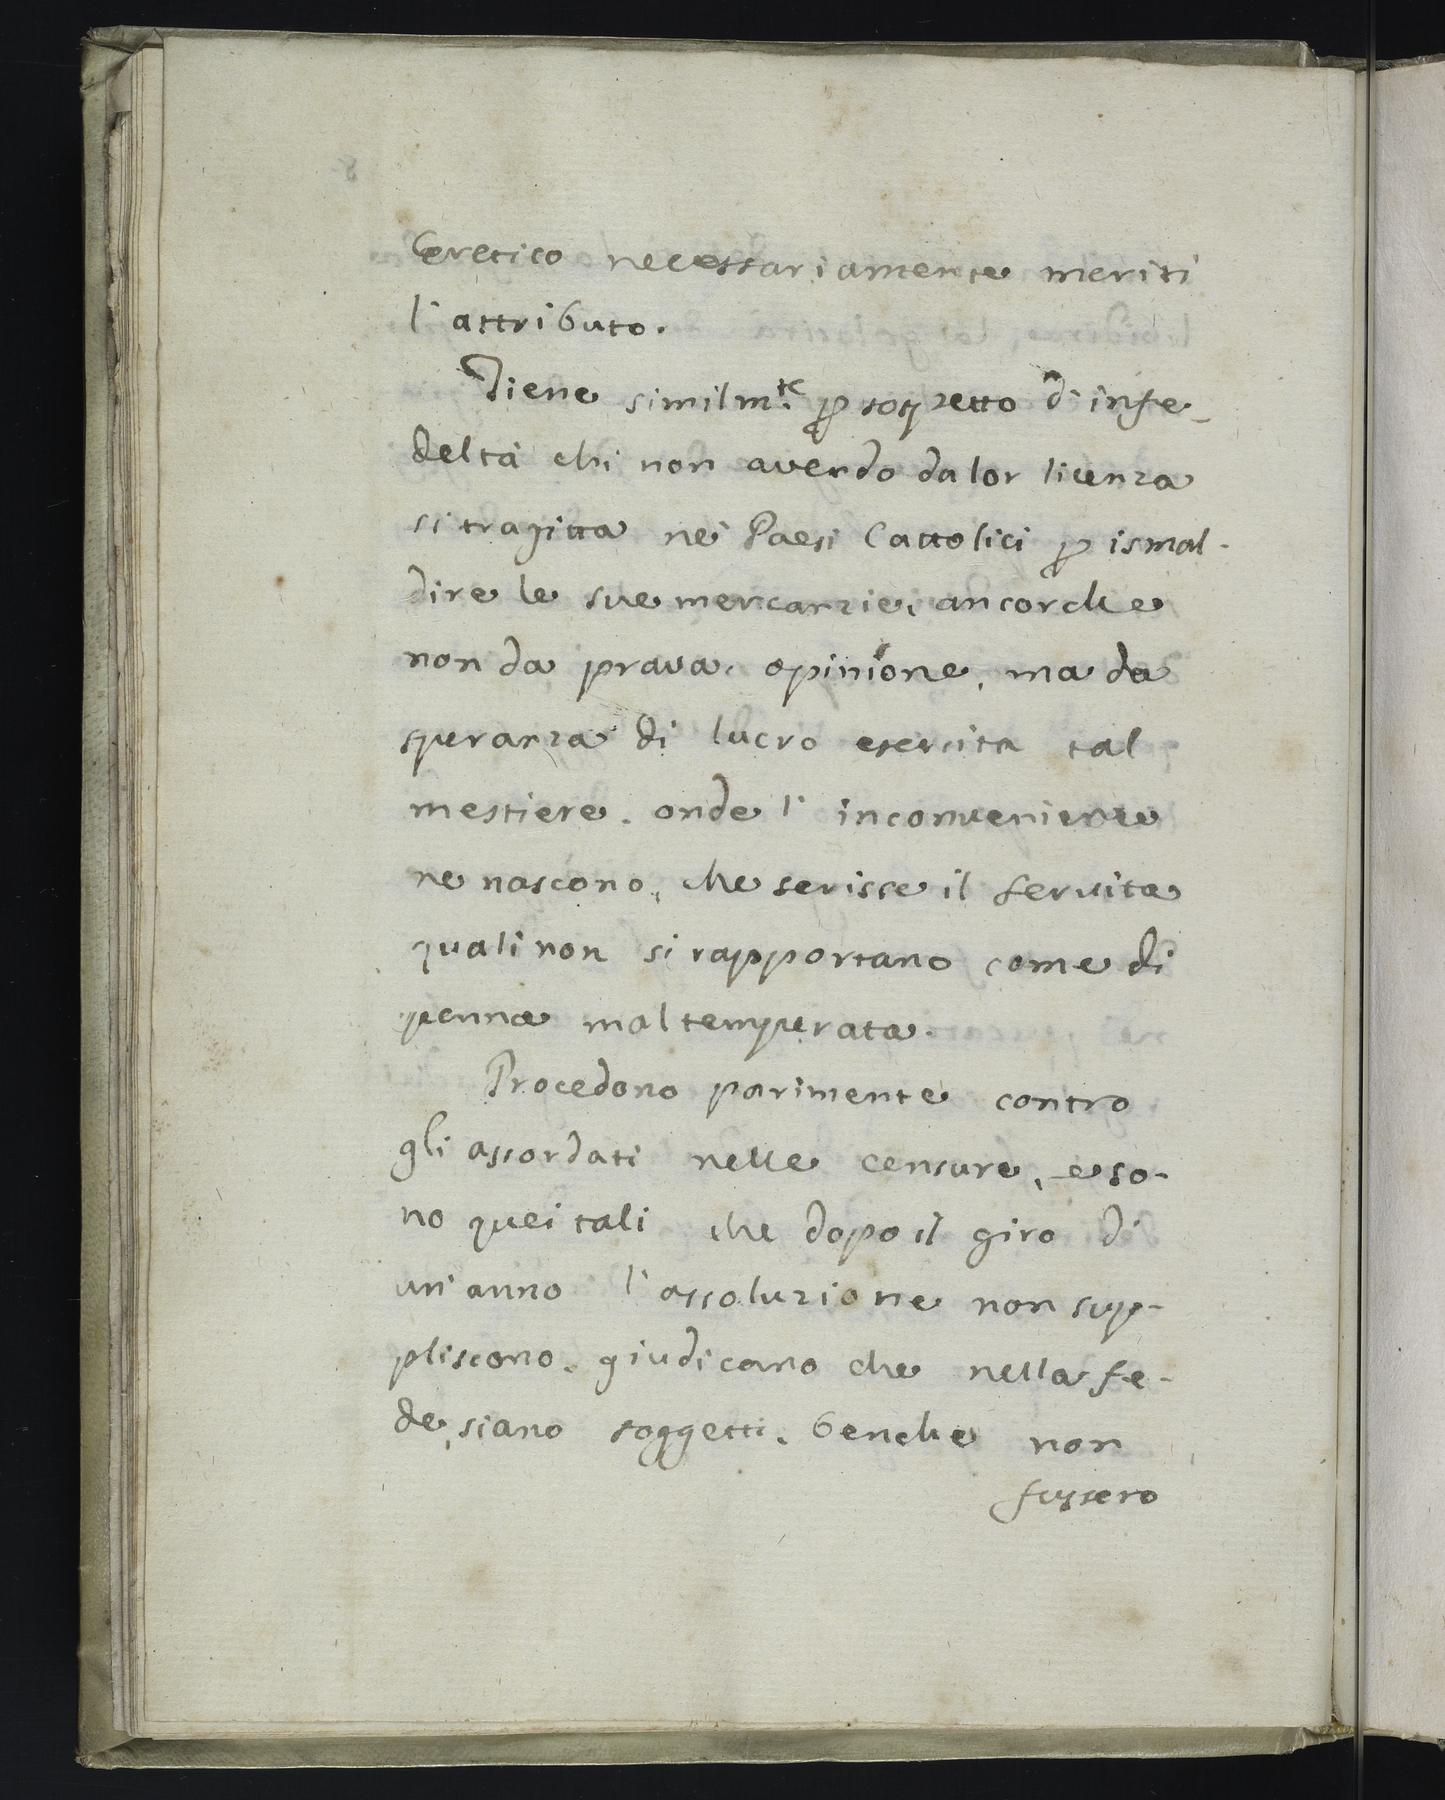 Eretico necessariamente meriti
l'attributo.
Tiene similm.te ꝑ sospetto d'infe-
deltà chi non avendo da lor licenza
si tragitta nè Paesi Cattolici ꝑ ismal-
dire le sue mercanzie, ancorche
non da prava opinione, ma da
speranza di lucro esercita tal
mestiere. onde l' inconveniente
ne nascono, che serisse il servita
quali non si rapportano come di
penna mal temperata.
Procedono parimente contro
gli assordati nelle censure, e so-
no quei tali che dopo il giro di
un'anno l'assoluzione non sup-
pliscono. giudicano che nella fe-
de, siano soggetti. benche non
fussero